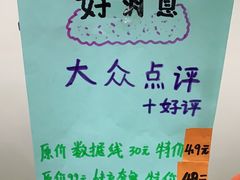 好消息
大众点评
+好评
原价 数据线 30元 特价 4.9元
原价99元 特价